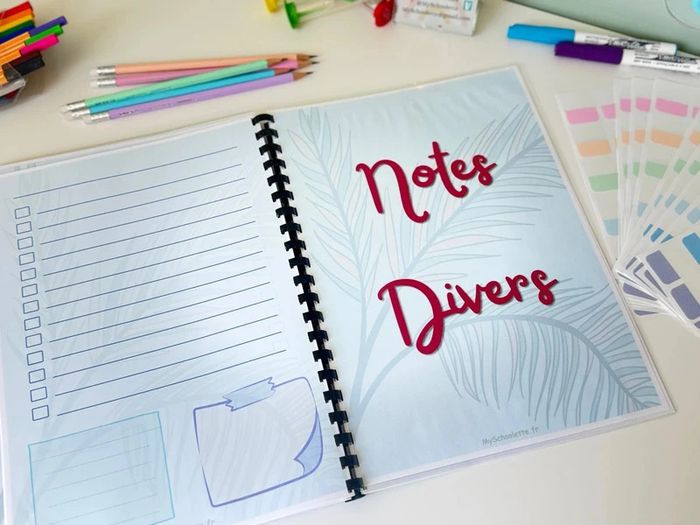 Notes
Divers
MySchoolette.fr